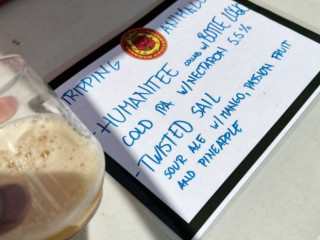 TRIPPING ANIMALS
- HUMANITEE COLLAB W/ BOTTLE LOGIC
COLD IPA W/ NECTARON 5.5%
- TWISTED SAIL
SOUR ALE W/ MANGO, PASSION FRUIT
AND PINEAPPLE